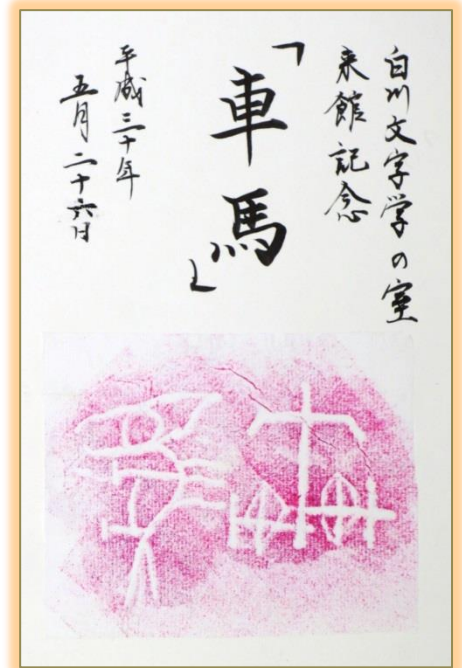 白川文字学の室
来館記念
「車馬」
平成三十年
五月二十六日